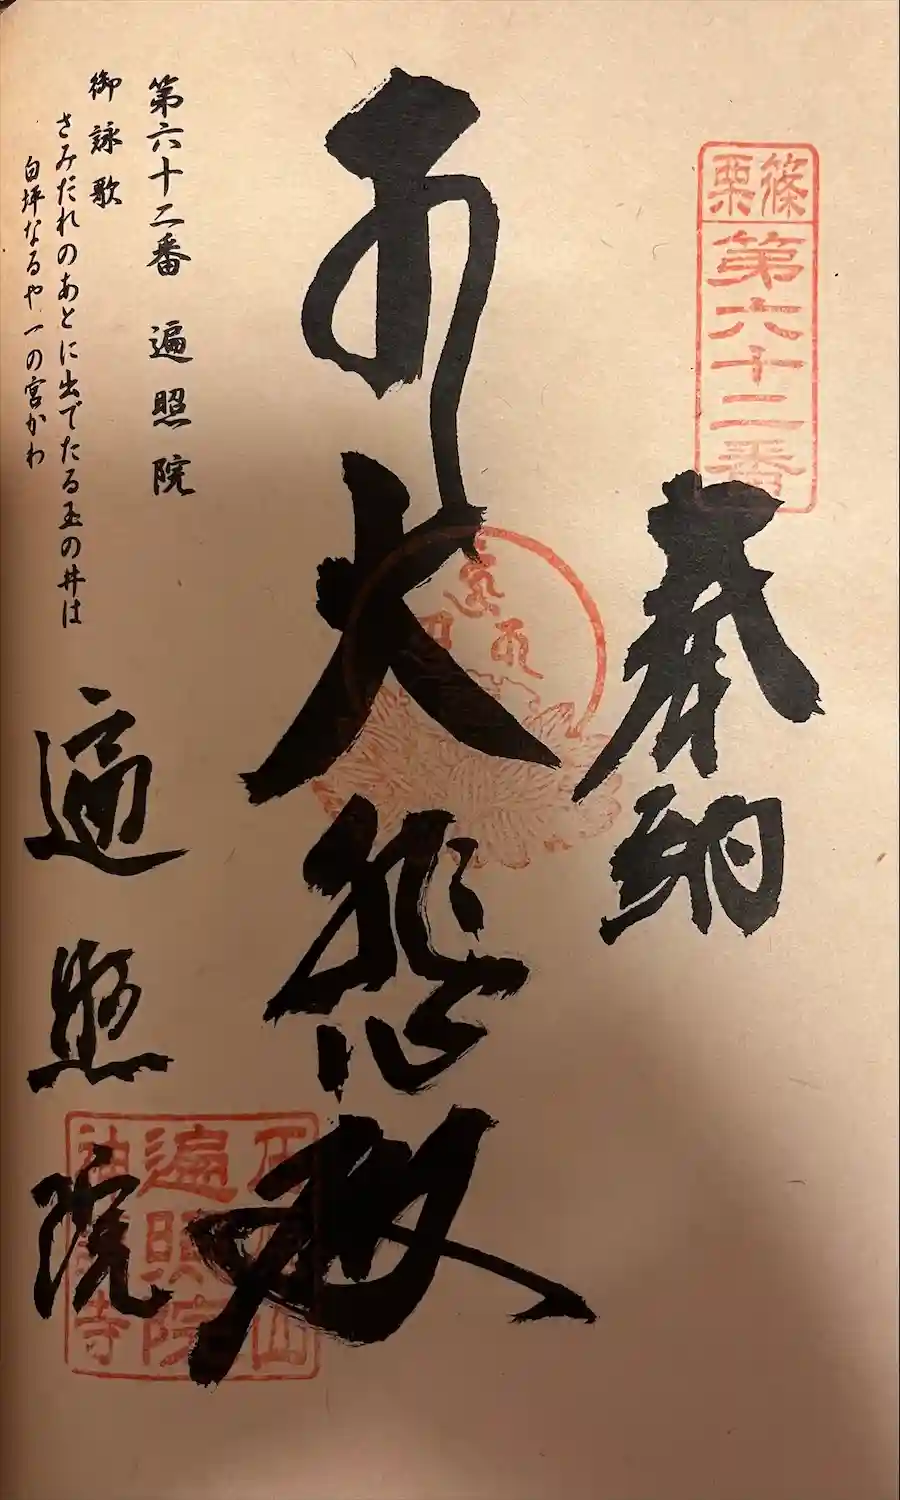 篠栗
第六十二番
奉納
大悲殿
遍照院
遍照院
第六十二番 遍照院
御詠歌
さみだれのあとに出でたる玉の井は
白坪なるや一の宮かわ